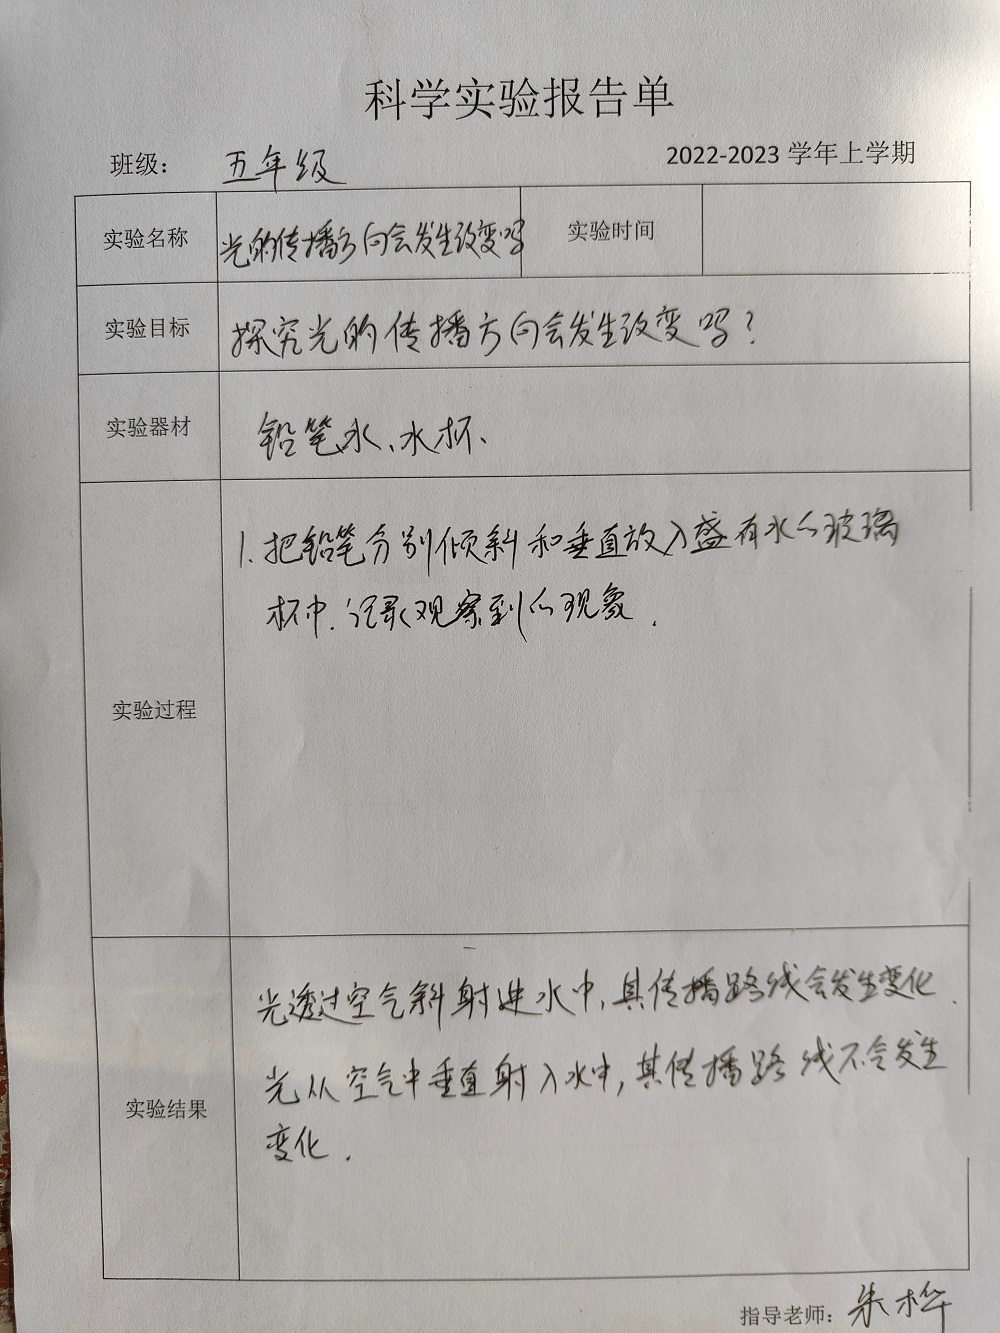 科学实验报告单
班级： 五年级 2022-2023 学年上学期
实验名称 光的传播方向会发生改变吗 实验时间
实验目标 探究光的传播方向会发生改变吗？
实验器材 铅笔水、水杯、
1. 把铅笔分别倾斜和垂直放入盛有水的玻璃
杯中.记录观察到的现象.
实验过程
光透过空气斜射进水中,其传播路线会发生变化.
光从空气中垂直射入水中,其传播路线不会发生
实验结果
变化.
指导老师：朱桦